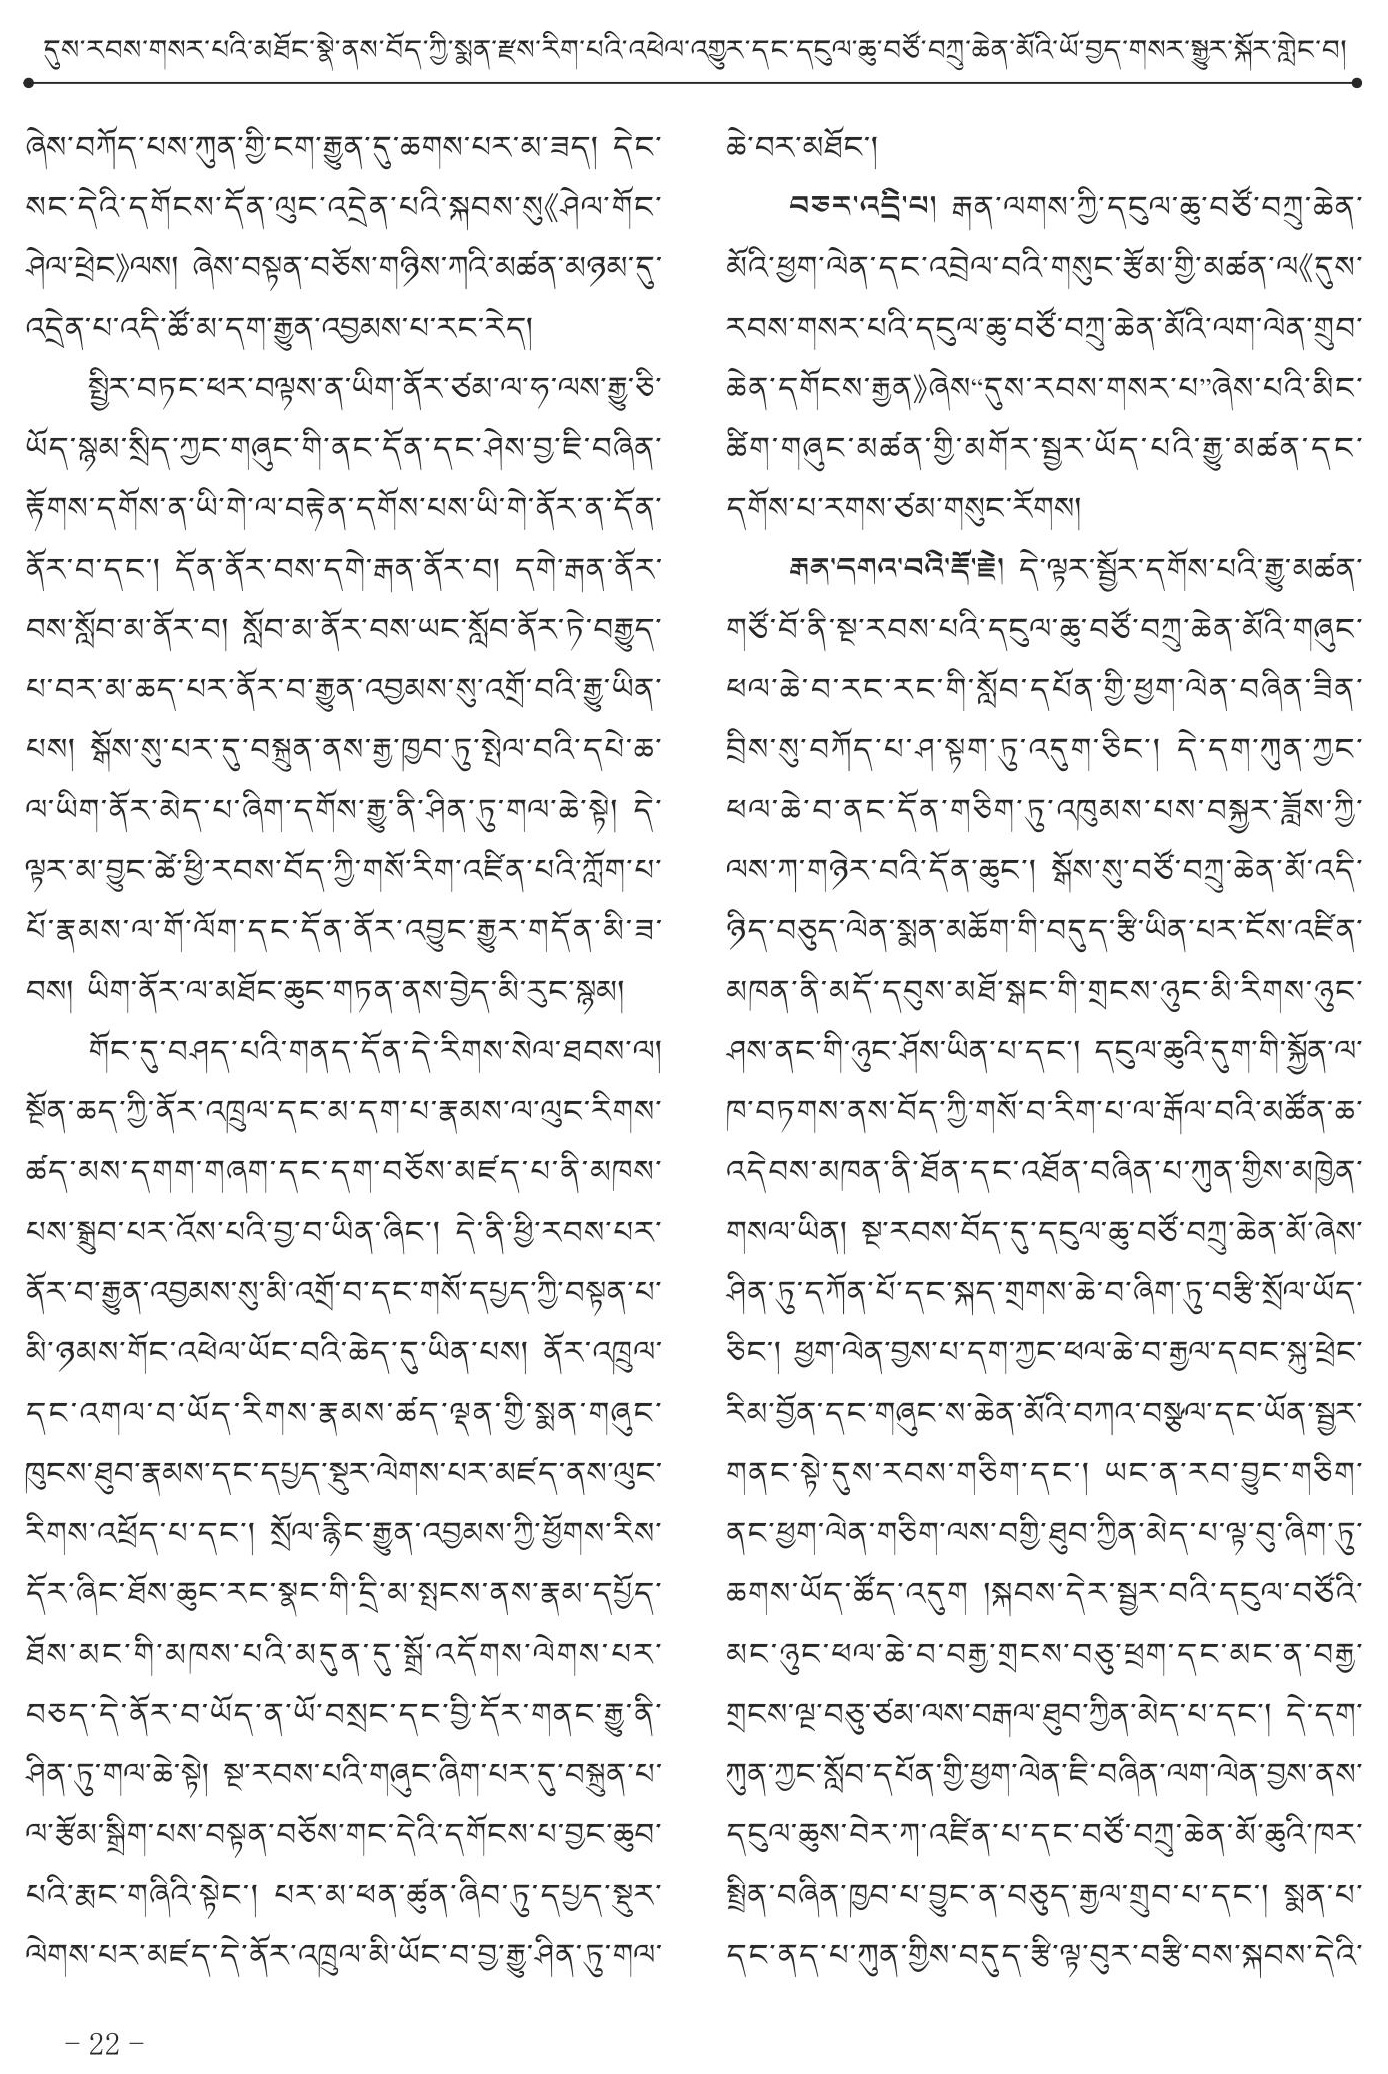 དུས་རབས་གསར་པའི་མཐོང་སྣེ་ནས་བོད་ཀྱི་སྨན་རྫས་རིག་པའི་འཕེལ་འགྱུར་དང་དངུལ་ཆུ་བཙོ་བཀྲུ་ཆེན་མོའི་ཡོ་བྱད་གསར་སྒྱུར་སྐོར་གླེང་བ།
ཞེས་བཀོད་པས་ཀུན་གྱི་ངག་རྒྱུན་དུ་ཆགས་པར་མ་ཟད། དེང་
སང་དེའི་དགོངས་དོན་ལུང་འདྲེན་པའི་སྐབས་སུ《ཤེལ་གོང་
ཤེལ་ཕྲེང》ལས། ཞེས་བསྟན་བཅོས་གཉིས་ཀའི་མཚན་མཉམ་དུ་
འདྲེན་པ་འདི་ཚོ་མ་དག་རྒྱུན་འབྱམས་པ་རང་རེད།
སྤྱིར་བཏང་ཕར་བལྟས་ན་ཡིག་ནོར་ཙམ་ལ་ཧ་ལས་རྒྱུ་ཅི་
ཡོད་སྙམ་སྲིད་ཀྱང་གཞུང་གི་ནང་དོན་དང་ཤེས་བྱ་ཇི་བཞིན་
རྟོགས་དགོས་ན་ཡི་གེ་ལ་བརྟེན་དགོས་པས་ཡི་གེ་ནོར་ན་དོན་
ནོར་བ་དང་། དོན་ནོར་བས་དགེ་རྒན་ནོར་བ། དགེ་རྒན་ནོར་
བས་སློབ་མ་ནོར་བ། སློབ་མ་ནོར་བས་ཡང་སློབ་ནོར་ཏེ་བརྒྱུད་
པ་བར་མ་ཆད་པར་ནོར་བ་རྒྱུན་འབྱམས་སུ་འགྲོ་བའི་རྒྱུ་ཡིན་
པས། སྒོས་སུ་པར་དུ་བསྐྲུན་ནས་རྒྱ་ཁྱབ་ཏུ་སྤེལ་བའི་དཔེ་ཆ་
ལ་ཡིག་ནོར་མེད་པ་ཞིག་དགོས་རྒྱུ་ནི་ཤིན་ཏུ་གལ་ཆེ་སྟེ། དེ་
ལྟར་མ་བྱུང་ཚེ་ཕྱི་རབས་བོད་ཀྱི་གསོ་རིག་འཛིན་པའི་ཀློག་པ་
པོ་རྣམས་ལ་གོ་ལོག་དང་དོན་ནོར་འབྱུང་རྒྱུར་གདོན་མི་ཟ་
བས། ཡིག་ནོར་ལ་མཐོང་ཆུང་གཏན་ནས་བྱེད་མི་རུང་སྙམ།
གོང་དུ་བཤད་པའི་གནད་དོན་དེ་རིགས་སེལ་ཐབས་ལ།
སྔོན་ཆད་ཀྱི་ནོར་འཁྲུལ་དང་མ་དག་པ་རྣམས་ལ་ལུང་རིགས་
ཚད་མས་དགག་གཞག་དང་དག་བཅོས་མཛད་པ་ནི་མཁས་
པས་སྒྲུབ་པར་འོས་པའི་བྱ་བ་ཡིན་ཞིང་། དེ་ནི་ཕྱི་རབས་པར་
ནོར་བ་རྒྱུན་འབྱམས་སུ་མི་འགྲོ་བ་དང་གསོ་དཔྱད་ཀྱི་བསྟན་པ་
མི་ཉམས་གོང་འཕེལ་ཡོང་བའི་ཆེད་དུ་ཡིན་པས། ནོར་འཁྲུལ་
དང་འགལ་བ་ཡོད་རིགས་རྣམས་ཚད་ལྡན་གྱི་སྨན་གཞུང་
ཁུངས་ཐུབ་རྣམས་དང་དཔྱད་སྡུར་ལེགས་པར་མཛད་ནས་ལུང་
རིགས་འཕྲོད་པ་དང་། སྲོལ་རྙིང་རྒྱུན་འབྱམས་ཀྱི་ཕྱོགས་རིས་
དོར་ཞིང་ཐོས་ཆུང་རང་སྣང་གི་དྲི་མ་སྤངས་ནས་རྣམ་དཔྱོད་
ཐོས་མང་གི་མཁས་པའི་མདུན་དུ་སྒྲོ་འདོགས་ལེགས་པར་
བཅད་དེ་ནོར་བ་ཡོད་ན་ཡོ་བསྲང་དང་བྱི་དོར་གནང་རྒྱུ་ནི་
ཤིན་ཏུ་གལ་ཆེ་སྟེ། སྔ་རབས་པའི་གཞུང་ཞིག་པར་དུ་བསྐྲུན་པ་
ལ་རྩོམ་སྒྲིག་པས་བསྟན་བཅོས་གང་དེའི་དགོངས་པ་བྱང་ཆུབ་
པའི་རྨང་གཞིའི་སྟེང་། པར་མ་ཕན་ཚུན་ཞིབ་ཏུ་དཔྱད་སྡུར་
ལེགས་པར་མཛད་དེ་ནོར་འཁྲུལ་མི་ཡོང་བ་བྱ་རྒྱུ་ཤིན་ཏུ་གལ་
ཆེ་བར་མཐོང་།
བཅར་འདྲི་པ། རྒན་ལགས་ཀྱི་དངུལ་ཆུ་བཙོ་བཀྲུ་ཆེན་
མོའི་ཕྱག་ལེན་དང་འབྲེལ་བའི་གསུང་རྩོམ་གྱི་མཚན་ལ《དུས་
རབས་གསར་པའི་དངུལ་ཆུ་བཙོ་བཀྲུ་ཆེན་མོའི་ལག་ལེན་གྲུབ་
ཆེན་དགོངས་རྒྱན》ཞེས“དུས་རབས་གསར་པ”ཞེས་པའི་མིང་
ཚིག་གཞུང་མཚན་གྱི་མགོར་སྦྱར་ཡོད་པའི་རྒྱུ་མཚན་དང་
དགོས་པ་རགས་ཙམ་གསུང་རོགས།
རྒན་དགའ་བའི་རྡོ་རྗེ། དེ་ལྟར་སྦྱོར་དགོས་པའི་རྒྱུ་མཚན་
གཙོ་བོ་ནི་སྔ་རབས་པའི་དངུལ་ཆུ་བཙོ་བཀྲུ་ཆེན་མོའི་གཞུང་
ཕལ་ཆེ་བ་རང་རང་གི་སློབ་དཔོན་གྱི་ཕྱག་ལེན་བཞིན་ཟིན་
བྲིས་སུ་བཀོད་པ་ཤ་སྟག་ཏུ་འདུག་ཅིང་། དེ་དག་ཀུན་ཀྱང་
ཕལ་ཆེ་བ་ནང་དོན་གཅིག་ཏུ་འཁུམས་པས་བསྐྱར་ཟློས་ཀྱི་
ལས་ཀ་གཉེར་བའི་དོན་ཆུང་། སྒོས་སུ་བཙོ་བཀྲུ་ཆེན་མོ་འདི་
ཉིད་བཅུད་ལེན་སྨན་མཆོག་གི་བདུད་རྩི་ཡིན་པར་ངོས་འཛིན་
མཁན་ནི་མདོ་དབུས་མཐོ་སྒང་གི་གྲངས་ཉུང་མི་རིགས་ཉུང་
ཤས་ནང་གི་ཉུང་ཤོས་ཡིན་པ་དང་། དངུལ་ཆུའི་དུག་གི་སྐྱོན་ལ་
ཁ་བཏགས་ནས་བོད་ཀྱི་གསོ་བ་རིག་པ་ལ་རྒོལ་བའི་མཚོན་ཆ་
འདེབས་མཁན་ནི་ཐོན་དང་འཐོན་བཞིན་པ་ཀུན་གྱིས་མཁྱེན་
གསལ་ཡིན། སྔ་རབས་བོད་དུ་དངུལ་ཆུ་བཙོ་བཀྲུ་ཆེན་མོ་ཞེས་
ཤིན་ཏུ་དཀོན་པོ་དང་སྐད་གྲགས་ཆེ་བ་ཞིག་ཏུ་བརྩི་སྲོལ་ཡོད་
ཅིང་། ཕྱག་ལེན་བྱས་པ་དག་ཀྱང་ཕལ་ཆེ་བ་རྒྱལ་དབང་སྐུ་ཕྲེང་
རིམ་བྱོན་དང་གཞུང་ས་ཆེན་མོའི་བཀའ་བསྩལ་དང་ཡོན་སྦྱར་
གནང་སྟེ་དུས་རབས་གཅིག་དང་། ཡང་ན་རབ་བྱུང་གཅིག་
ནང་ཕྱག་ལེན་གཅིག་ལས་བགྱི་ཐུབ་ཀྱིན་མེད་པ་ལྟ་བུ་ཞིག་ཏུ་
ཆགས་ཡོད་ཚོད་འདུག །སྐབས་དེར་སྦྱར་བའི་དངུལ་བཙོའི་
མང་ཉུང་ཕལ་ཆེ་བ་བརྒྱ་གྲངས་བཅུ་ཕྲག་དང་མང་ན་བརྒྱ་
གྲངས་ལྔ་བཅུ་ཙམ་ལས་བརྒལ་ཐུབ་ཀྱིན་མེད་པ་དང་། དེ་དག་
ཀུན་ཀྱང་སློབ་དཔོན་གྱི་ཕྱག་ལེན་ཇི་བཞིན་ལག་ལེན་བྱས་ནས་
དངུལ་ཆུས་བེར་ཀ་འཛིན་པ་དང་བཙོ་བཀྲུ་ཆེན་མོ་ཆུའི་ཁར་
སྤྲིན་བཞིན་ཁྱབ་པ་བྱུང་ན་བཅུད་རྒྱལ་གྲུབ་པ་དང་། སྨན་པ་
དང་ནད་པ་ཀུན་གྱིས་བདུད་རྩི་ལྟ་བུར་བརྩི་བས་སྐབས་དེའི་
- 22 -